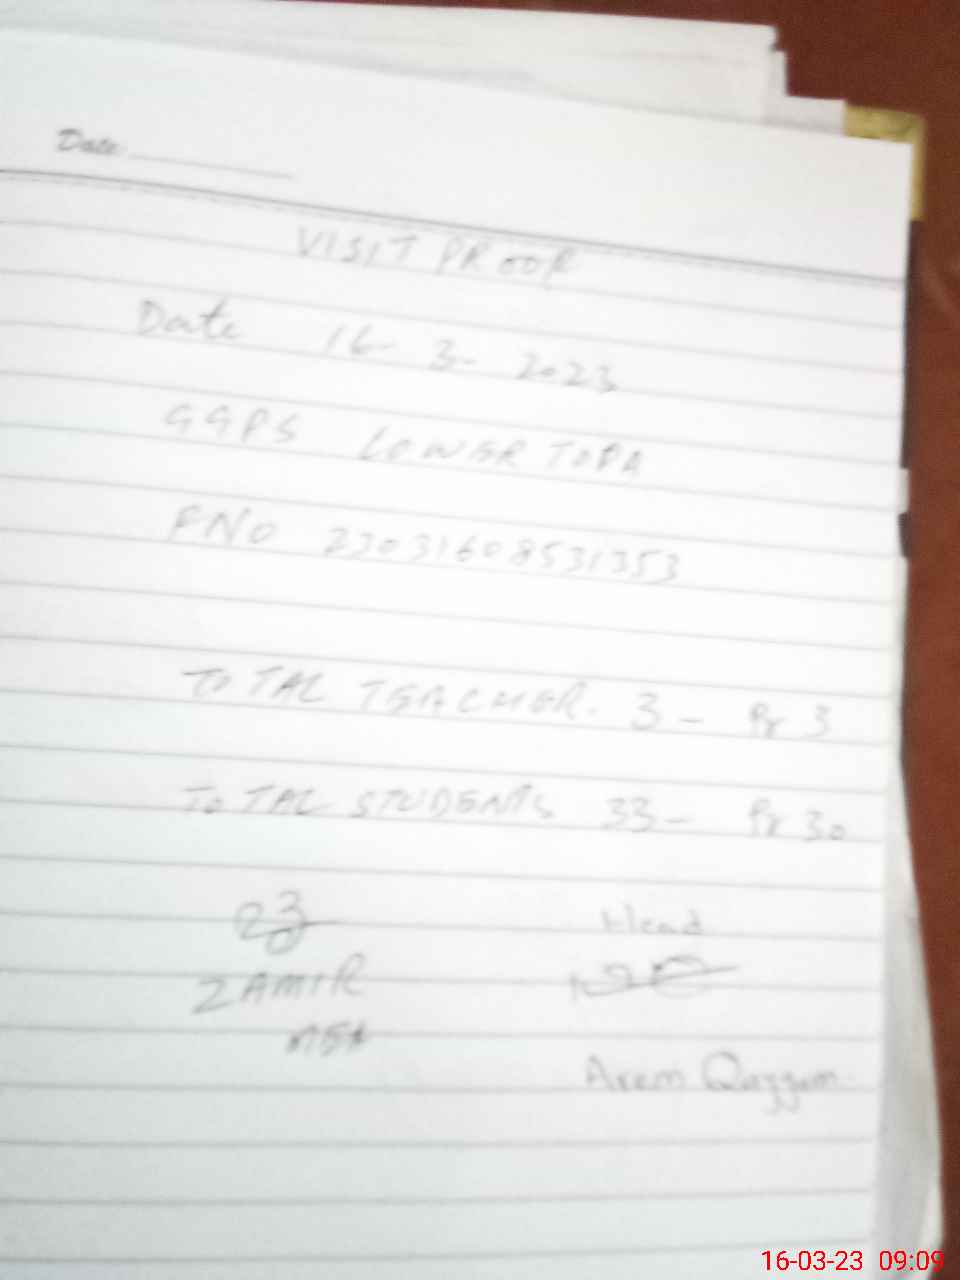 Date:
VISIT PROOF
Date 16-3-2023
GGPS LOWER TOPA
FNO 23031608531353
TOTAL TEACHER. 3 - Pr 3
TOTAL STUDENTS 33 - Pr 30
Head
ZAMIR
MEA
Arem Qayyum
16-03-23 09:09